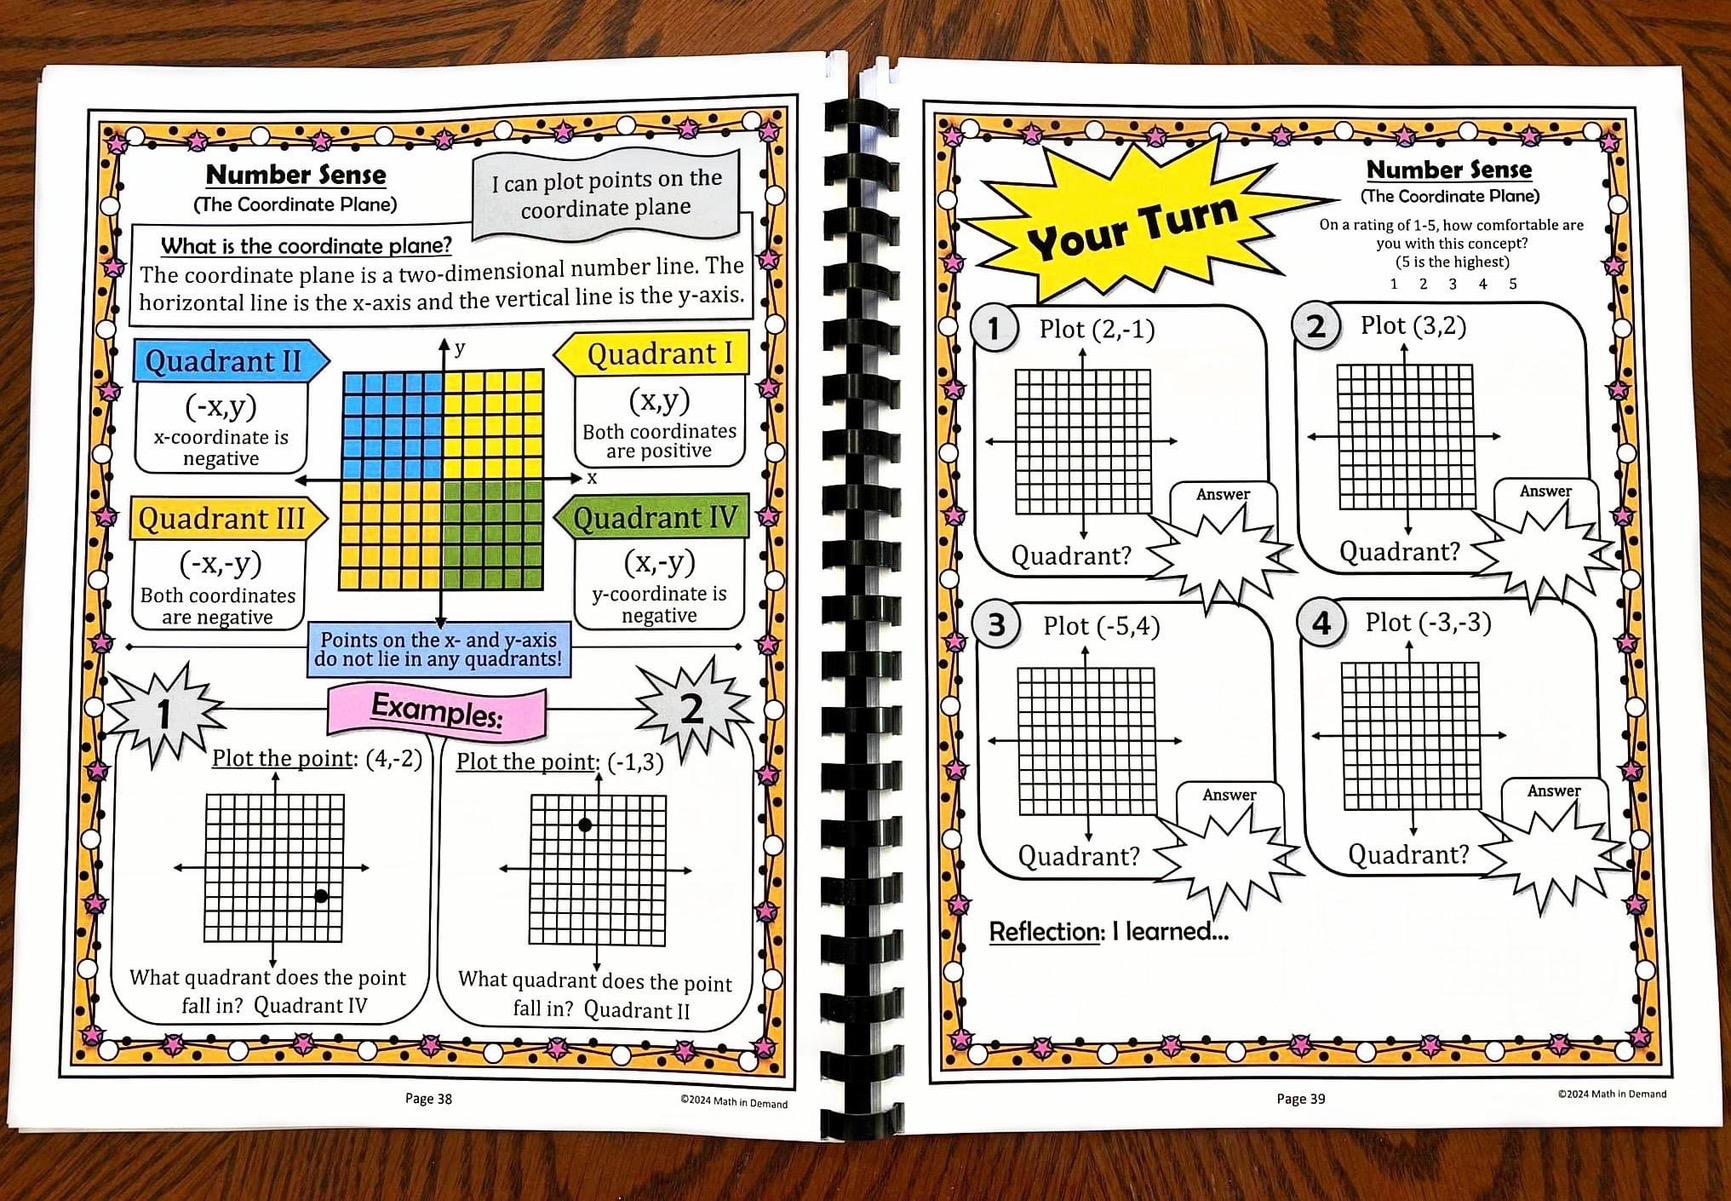 Number Sense
(The Coordinate Plane)
I can plot points on the
coordinate plane
What is the coordinate plane?
The coordinate plane is a two-dimensional number line. The
horizontal line is the x-axis and the vertical line is the y-axis.
Quadrant II
(-x,y)
x-coordinate is
negative
y
x
Quadrant I
(x,y)
Both coordinates
are positive
Quadrant III
(-x,-y)
Both coordinates
are negative
Quadrant IV
(x,-y)
y-coordinate is
negative
Points on the x- and y-axis
do not lie in any quadrants!
Examples:
1
Plot the point: (4,-2)
What quadrant does the point
fall in? Quadrant IV
2
Plot the point: (-1,3)
What quadrant does the point
fall in? Quadrant II
Page 38
©2024 Math in Demand
Your Turn
Number Sense
(The Coordinate Plane)
On a rating of 1-5, how comfortable are
you with this concept?
(5 is the highest)
1 2 3 4 5
1 Plot (2,-1)
Answer
Quadrant?
2 Plot (3,2)
Answer
Quadrant?
3 Plot (-5,4)
Answer
Quadrant?
4 Plot (-3,-3)
Answer
Quadrant?
Reflection: I learned...
Page 39
©2024 Math in Demand